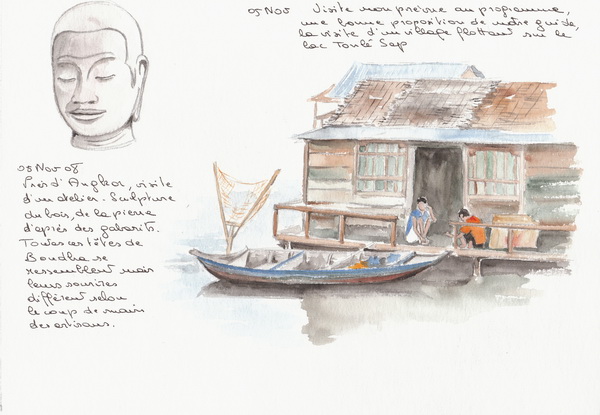 05 Nov Visite non prévue au programme,
une bonne proposition de notre guide,
la visite d'un village flottant sur le
lac Tonlé Sap
05 Nov 08
Près d'Angkor, visite
d'un atelier. Sculpture
du bois, de la pierre
d'après des gabarits.
Toutes ces têtes de
Boudha se
ressemblent mais
leurs sourires
diffèrent selon
le coup de main
des artisans.